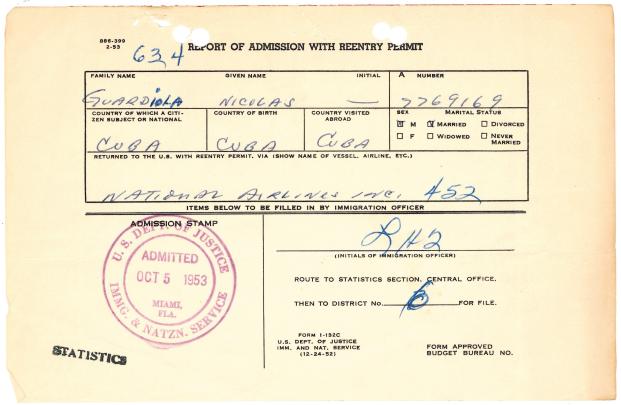 886-399
2-53
634
REPORT OF ADMISSION WITH REENTRY PERMIT
FAMILY NAME GIVEN NAME INITIAL A NUMBER
GUARDIOLA NICOLAS — 7769169
COUNTRY OF WHICH A CITI-
ZEN SUBJECT OR NATIONAL
COUNTRY OF BIRTH
COUNTRY VISITED
ABROAD
SEX MARITAL STATUS
M MARRIED DIVORCED
F WIDOWED NEVER
MARRIED
CUBA CUBA CUBA
RETURNED TO THE U.S. WITH REENTRY PERMIT, VIA (SHOW NAME OF VESSEL, AIRLINE, ETC.)
NATIONAL AIRLINES INC. 452
ITEMS BELOW TO BE FILLED IN BY IMMIGRATION OFFICER
ADMISSION STAMP
U.S. DEPT. OF JUSTICE
ADMITTED
OCT 5 1953
MIAMI,
FLA.
IMMG. & NATZN. SERVICE
(INITIALS OF IMMIGRATION OFFICER)
ROUTE TO STATISTICS SECTION, CENTRAL OFFICE.
THEN TO DISTRICT No. 6 FOR FILE.
STATISTICS
FORM I-132C
U.S. DEPT. OF JUSTICE
IMM. AND NAT. SERVICE
(12-24-52)
FORM APPROVED
BUDGET BUREAU NO.